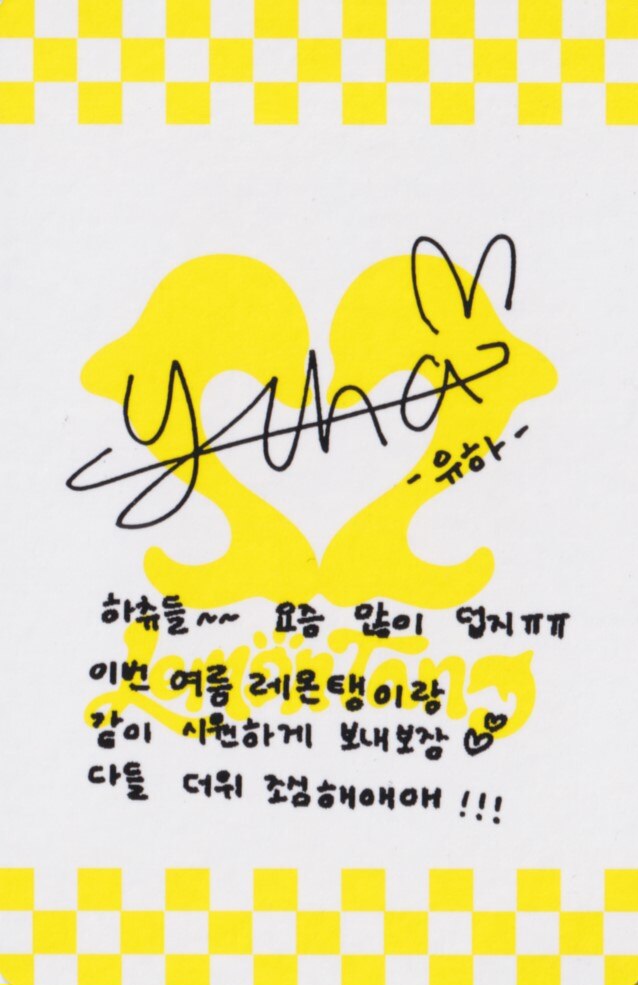 yuha
-유하-
하츄들~~ 요즘 많이 덥지ㅠㅠ
이번 여름 레몬탱이랑
같이 시원하게 보내보장
다들 더위 조심해애애 !!!
Lemon Tang